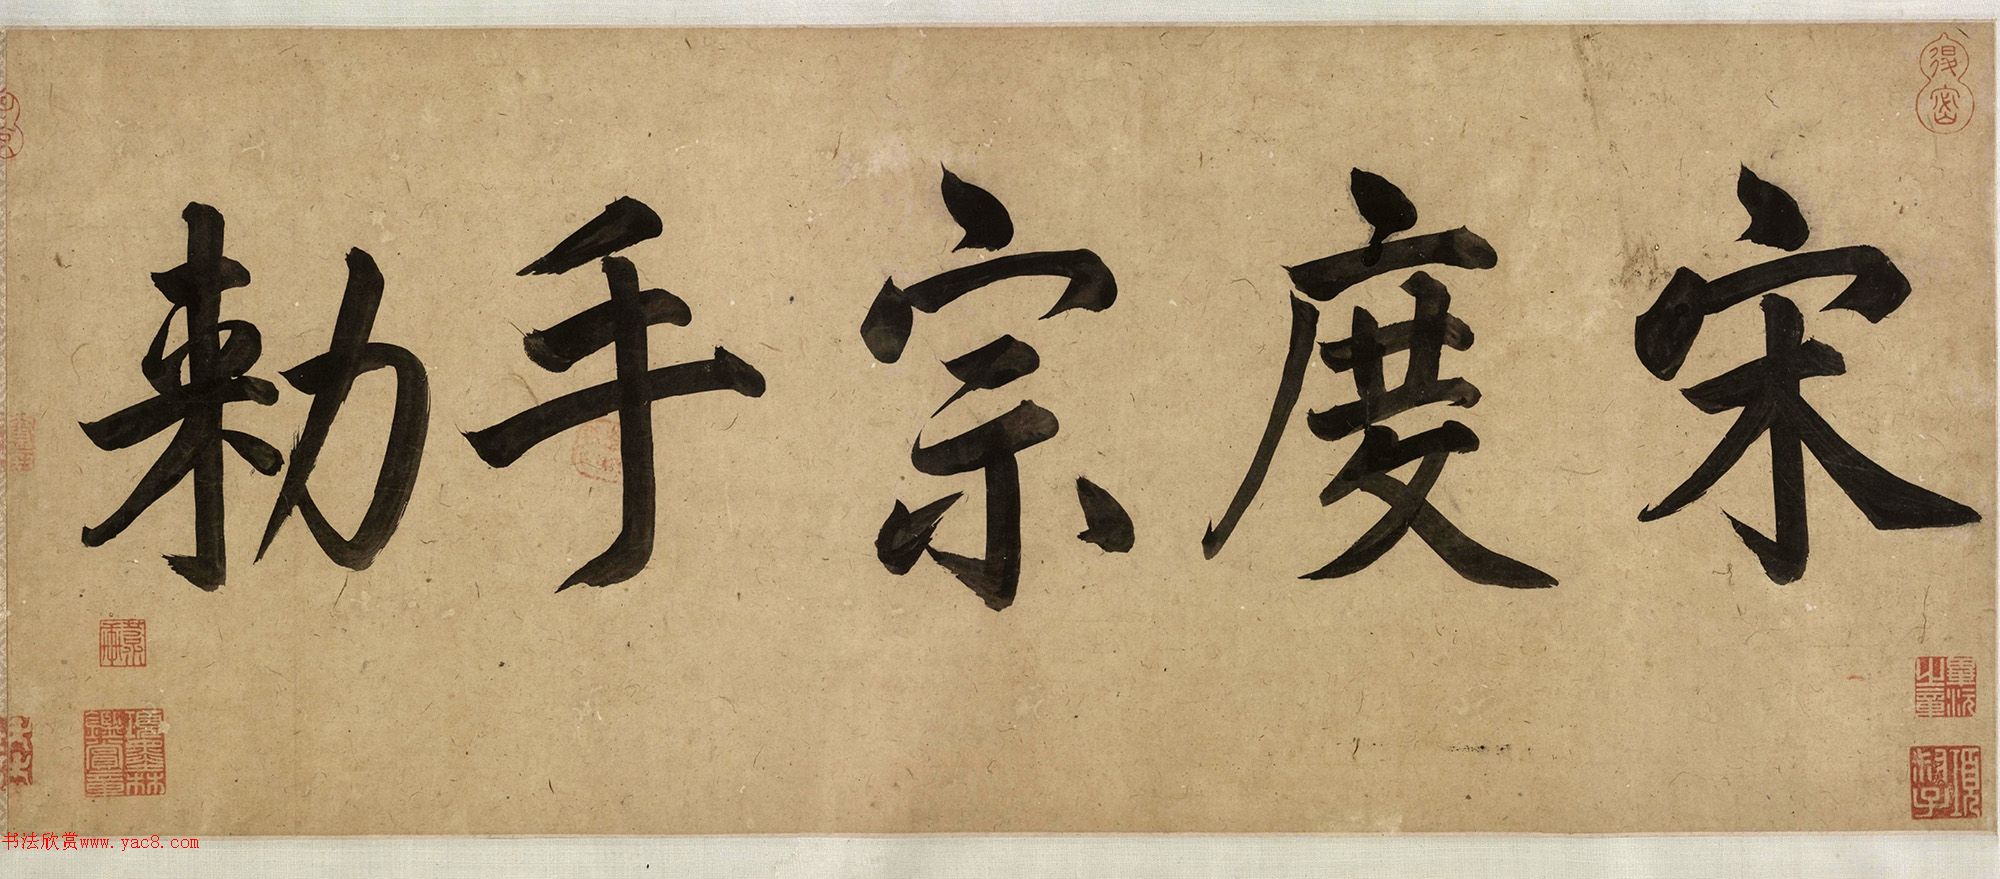 宋度宗手勅
书法欣赏www.yac8.com